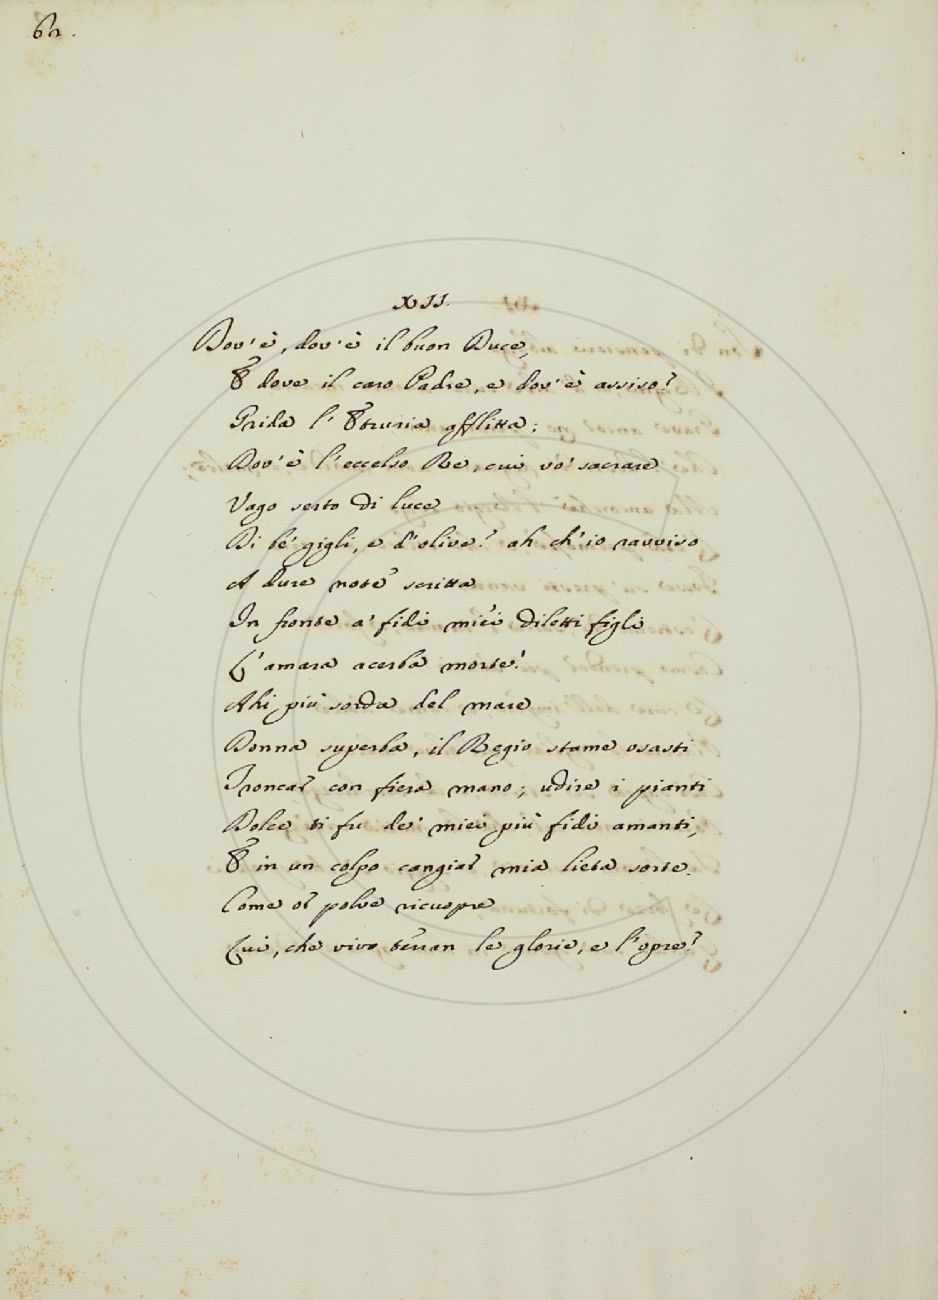 62.
XII.
Dov'è, dov'è il buon Duce,
E dove il caro Padre, e dov'è assiso?
Grida l'Etruria afflitta:
Dov'è l'eccelso Re, cui vo' sacrare
Vago serto di luce
Di be' gigli, e d'olive? ah ch'io ravviso
A dure note scritta
In fronte a' fidi miei diletti figli
L'amara acerba morte!
Ahi più sorda del mare
Donna superba, il Regio stame osasti
Troncar con fiera mano; udire i pianti
Dolce ti fu de' miei più fidi amanti,
E in un colpo cangiar mia lieta sorte.
Come or polve ricuopre
Lui, che vivo terran le glorie, e l'opre?